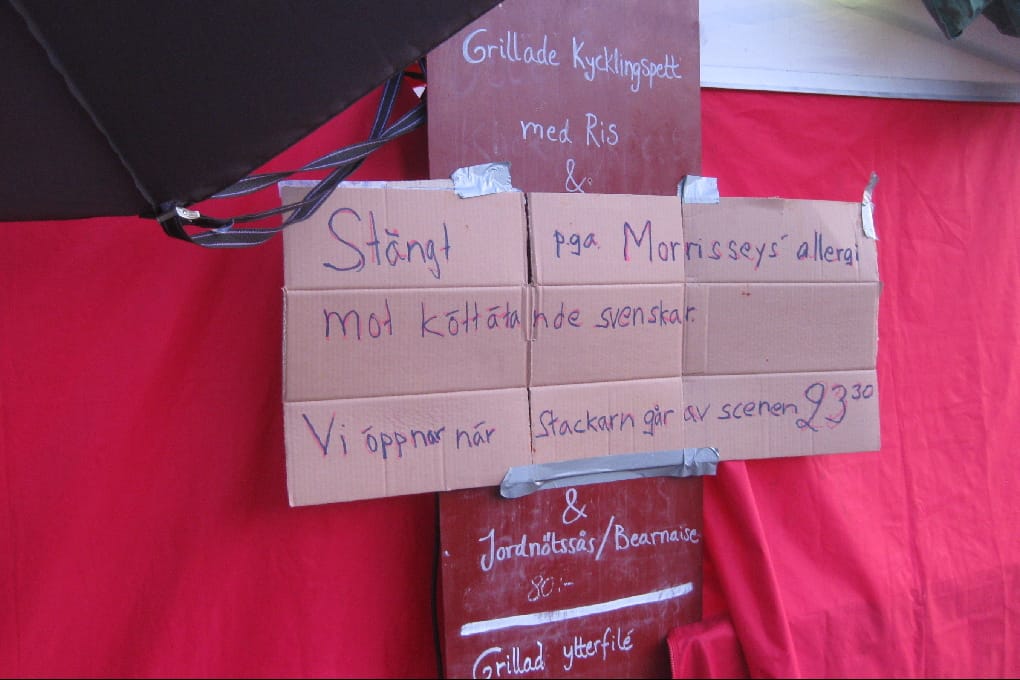 Grillade Kycklingspett
med Ris
&
Stängt p.ga. Morrisseys' allergi
mot köttätande svenskar.
Vi öppnar när stackarn går av scenen 23³⁰
&
Jordnötssås/Bearnaise
80:-
Grillad ytterfilé